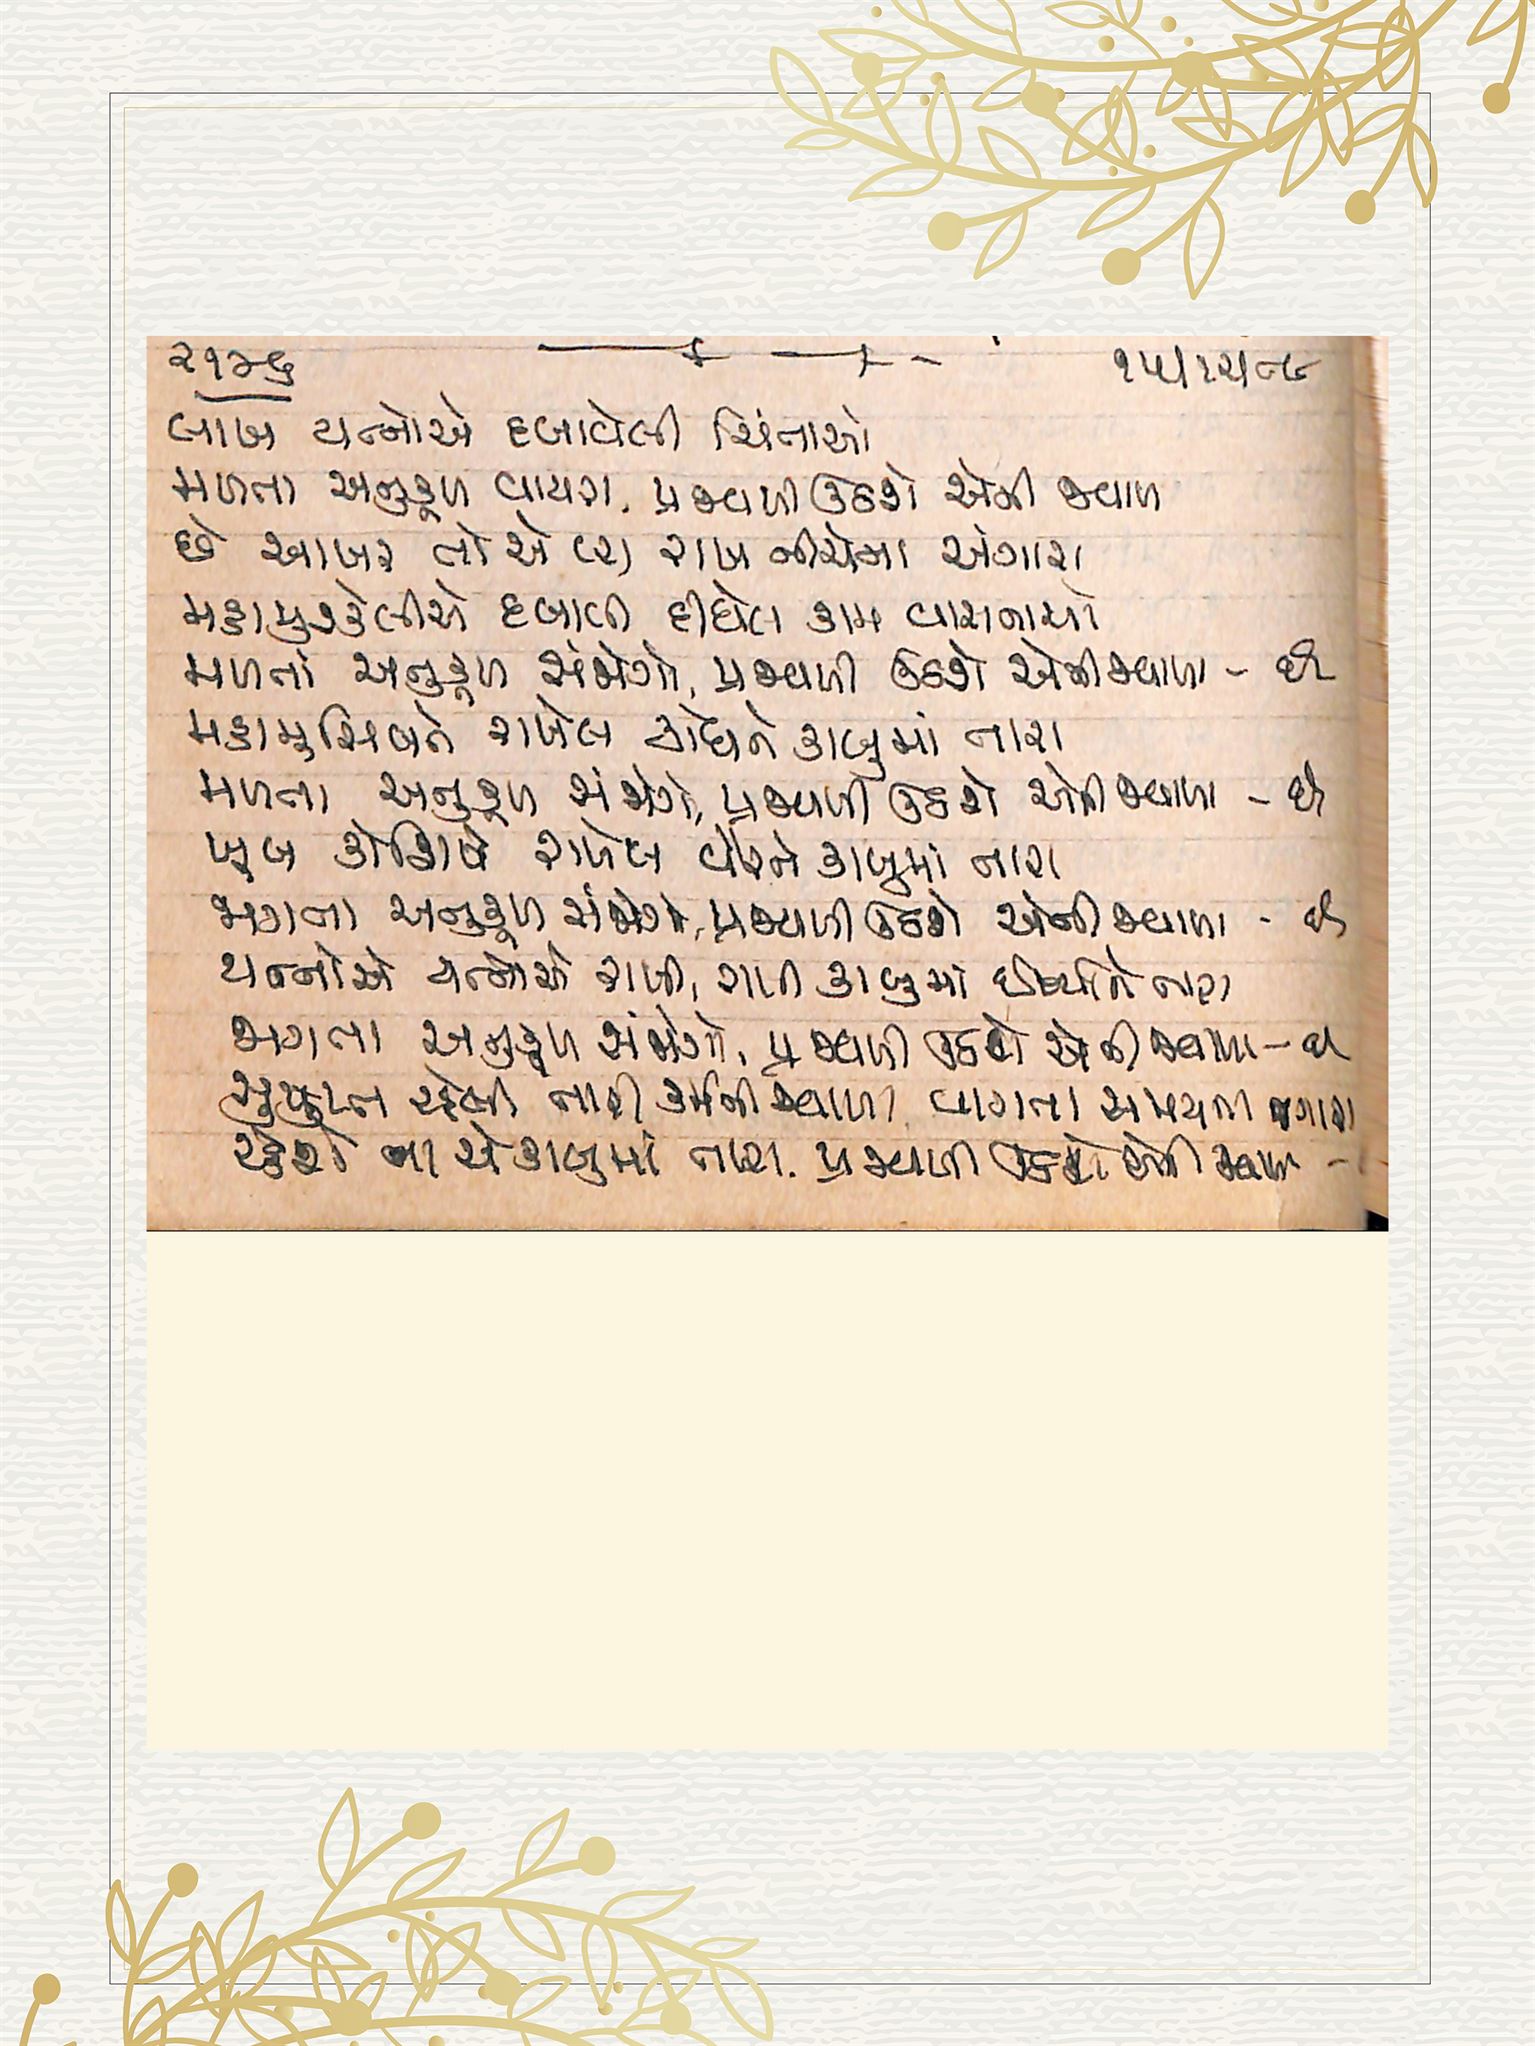 ૨૧૨૬ ૧૫/૧૨/૯૮
લાખ યત્નોએ દબાવેલી ચિંતાઓ
મળતા અનુકૂળ વાયરા, પ્રજ્વળી ઉઠશે એની જ્વાળ
છે આખર તો એ (૨) રાખ નીચેના અંગારા
મહામુશ્કેલીએ દબાવી દીધેલ કામ વાસનાઓ
મળતાં અનુકૂળ સંજોગો, પ્રજ્વળી ઉઠશે એની જ્વાળા - છે
મહામુસિબતે રાખેલ ક્રોધને કાબુમાં તારા
મળતા અનુકૂળ સંજોગો, પ્રજ્વળી ઉઠશે એની જ્વાળા - છે
ખૂબ કોશિશે રાખેલ વેરને કાબુમાં તારા
મળતા અનુકૂળ સંજોગો, પ્રજ્વળી ઉઠશે એની જ્વાળા - છે
યત્નોએ યત્નોએ રાખી, રાખી કાબુમાં ઈર્ષ્યાને તારા
મળતા અનુકૂળ સંજોગો, પ્રજ્વળી ઉઠશે એની જ્વાળા - છે
સુષુપ્ત રહેલી તારી કર્મની જ્વાળા, વાગતા સમયના
રહેશે ના એ કાબુમાં તારા, પ્રજ્વળી ઉઠશે એની જ્વાળા -